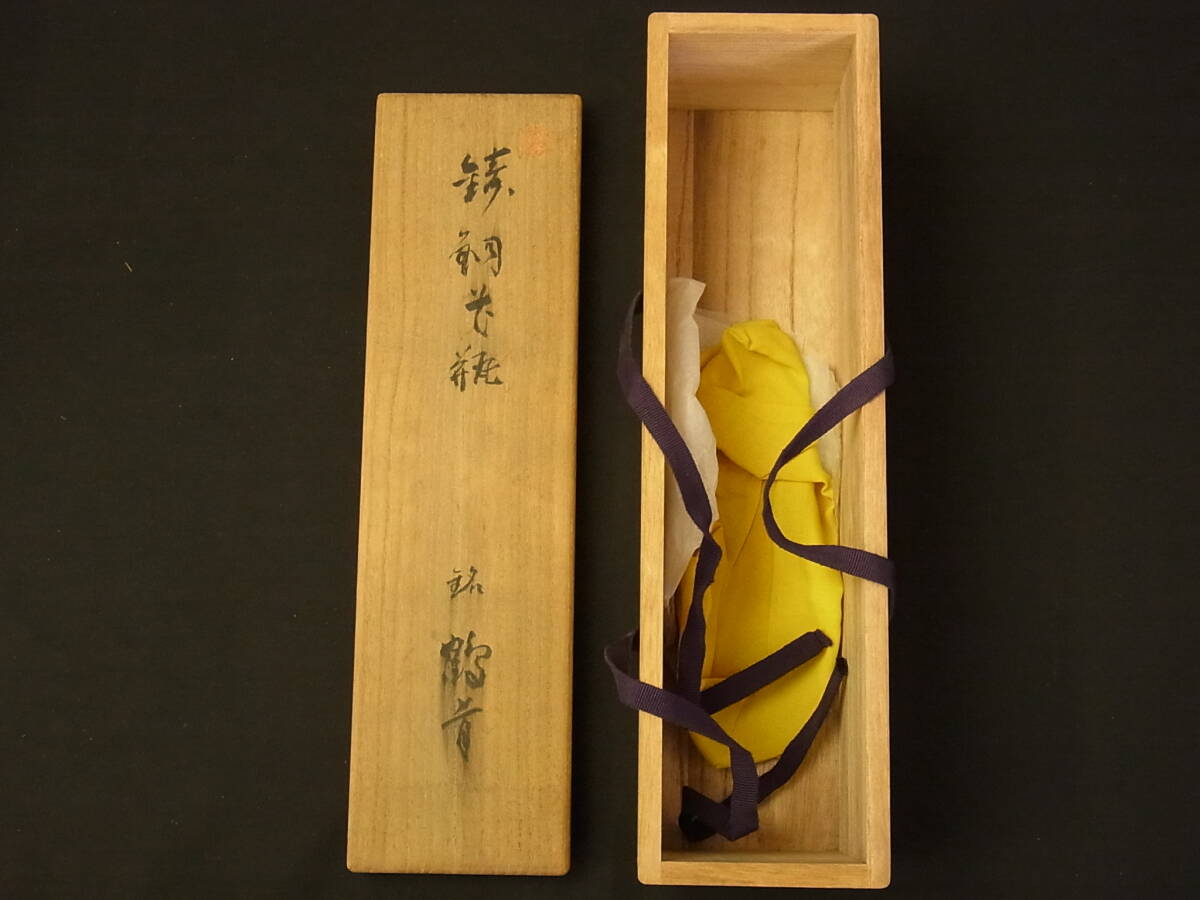 鋳銅花瓶
銘 鶴首